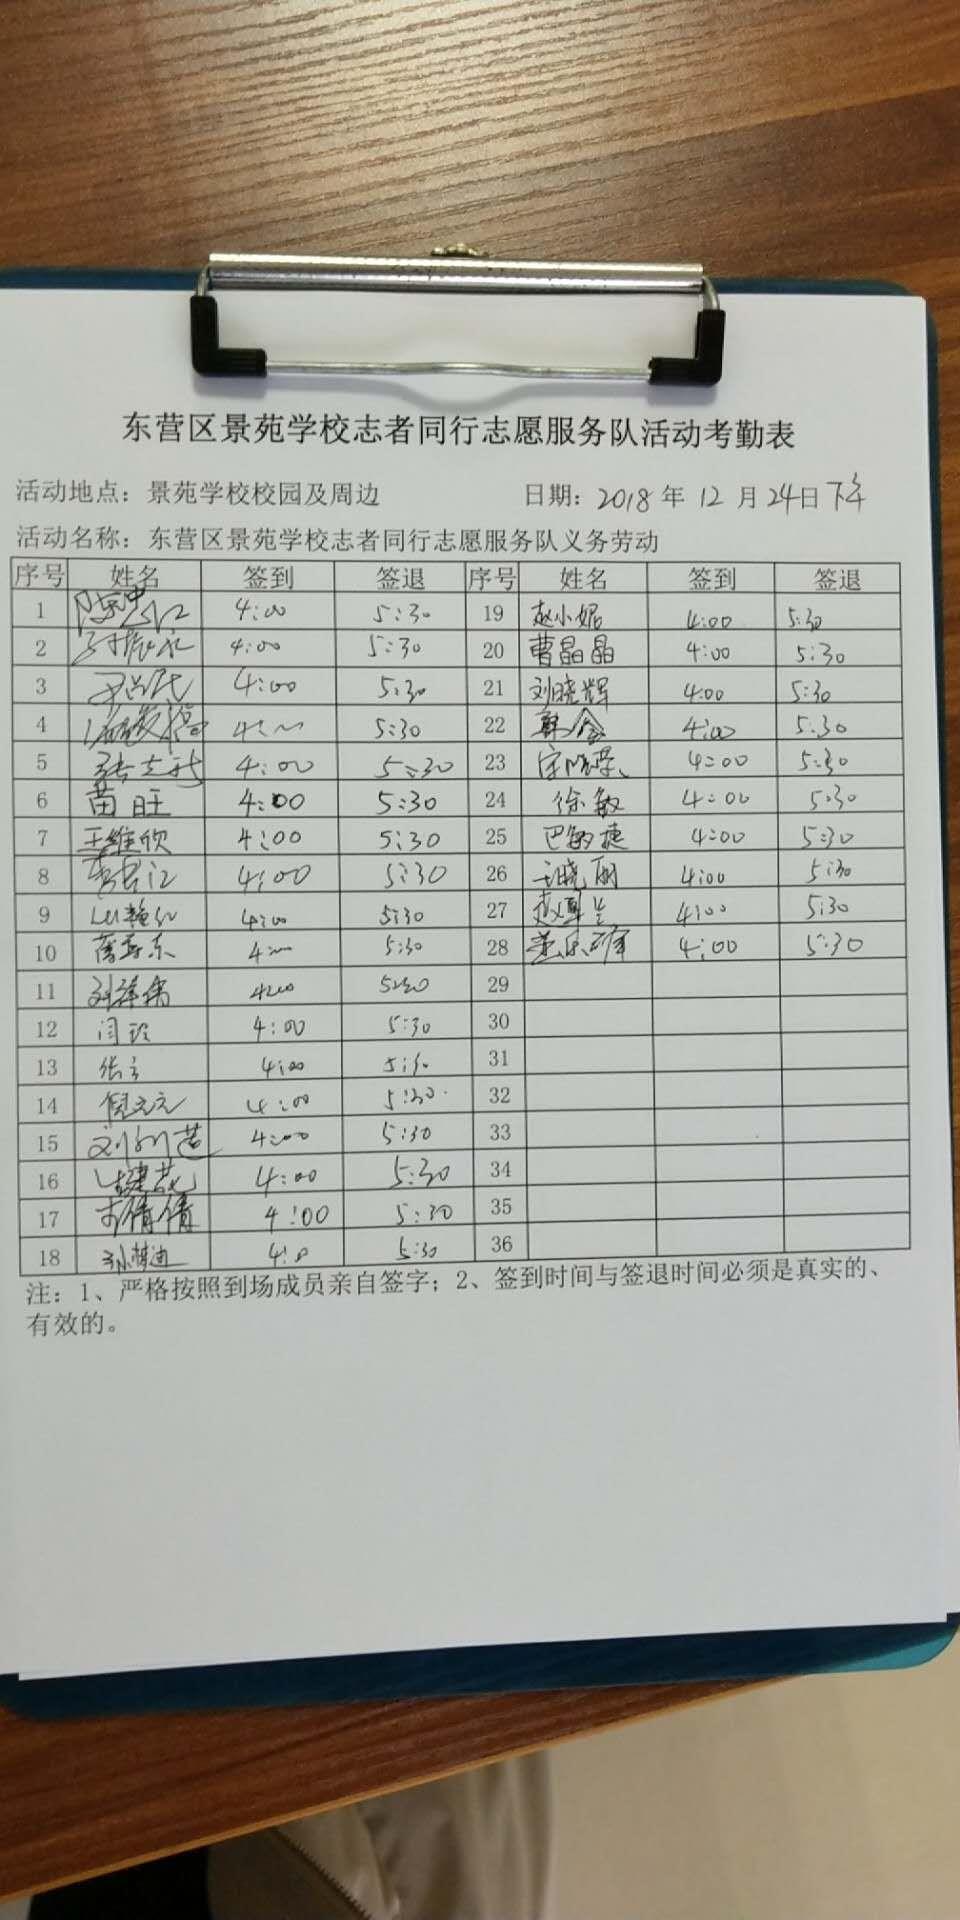 东营区景苑学校志者同行志愿服务队活动考勤表
活动地点：景苑学校校园及周边 日期：2018年12月24日下午
活动名称：东营区景苑学校志者同行志愿服务队义务劳动
序号 姓名 签到 签退 序号 姓名 签到 签退
1 4:00 5:30 19 赵小妮 4:00 5:30
2 4:00 5:30 20 曹晶晶 4:00 5:30
3 4:00 5:30 21 刘晓辉 4:00 5:30
4 5:30 22 4:00 5:30
5 4:00 5:30 23 4:00 5:30
6 苗旺 4:00 5:30 24 徐敏 4:00 5:30
7 王维欣 4:00 5:30 25 巴敏捷 4:00 5:30
8 4:00 5:30 26 王晓丽 4:00 5:30
9 4:00 5:30 27 4:00 5:30
10 5:30 28 4:00 5:30
11 4:00 5:30 29
12 闫玲 4:00 5:30 30
13 4:00 5:30 31
14 倪元元 4:00 5:30 32
15 4:00 5:30 33
16 4:00 5:30 34
17 4:00 5:30 35
18 孙梦迪 4:0 5:30 36
注：1、严格按照到场成员亲自签字；2、签到时间与签退时间必须是真实的、
有效的。